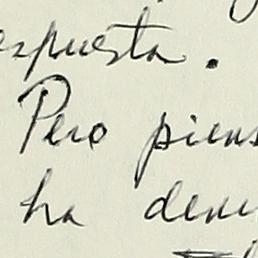 espuesta.
Pero piens
ha deve